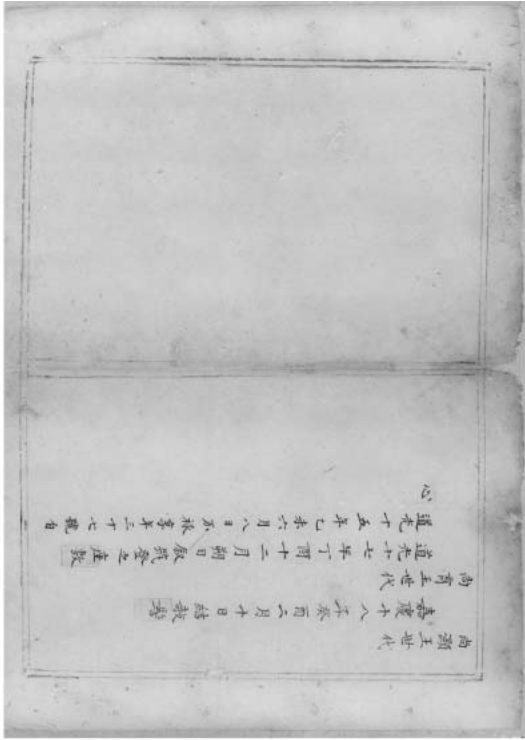 尚灝王世代
嘉慶十八年癸酉二月十日結敧髻
尚育王世代
道光十七年丁酉十二月朔日敘筑登之座敷
道光十五年己未六月八日不祿享年三十七號自
心